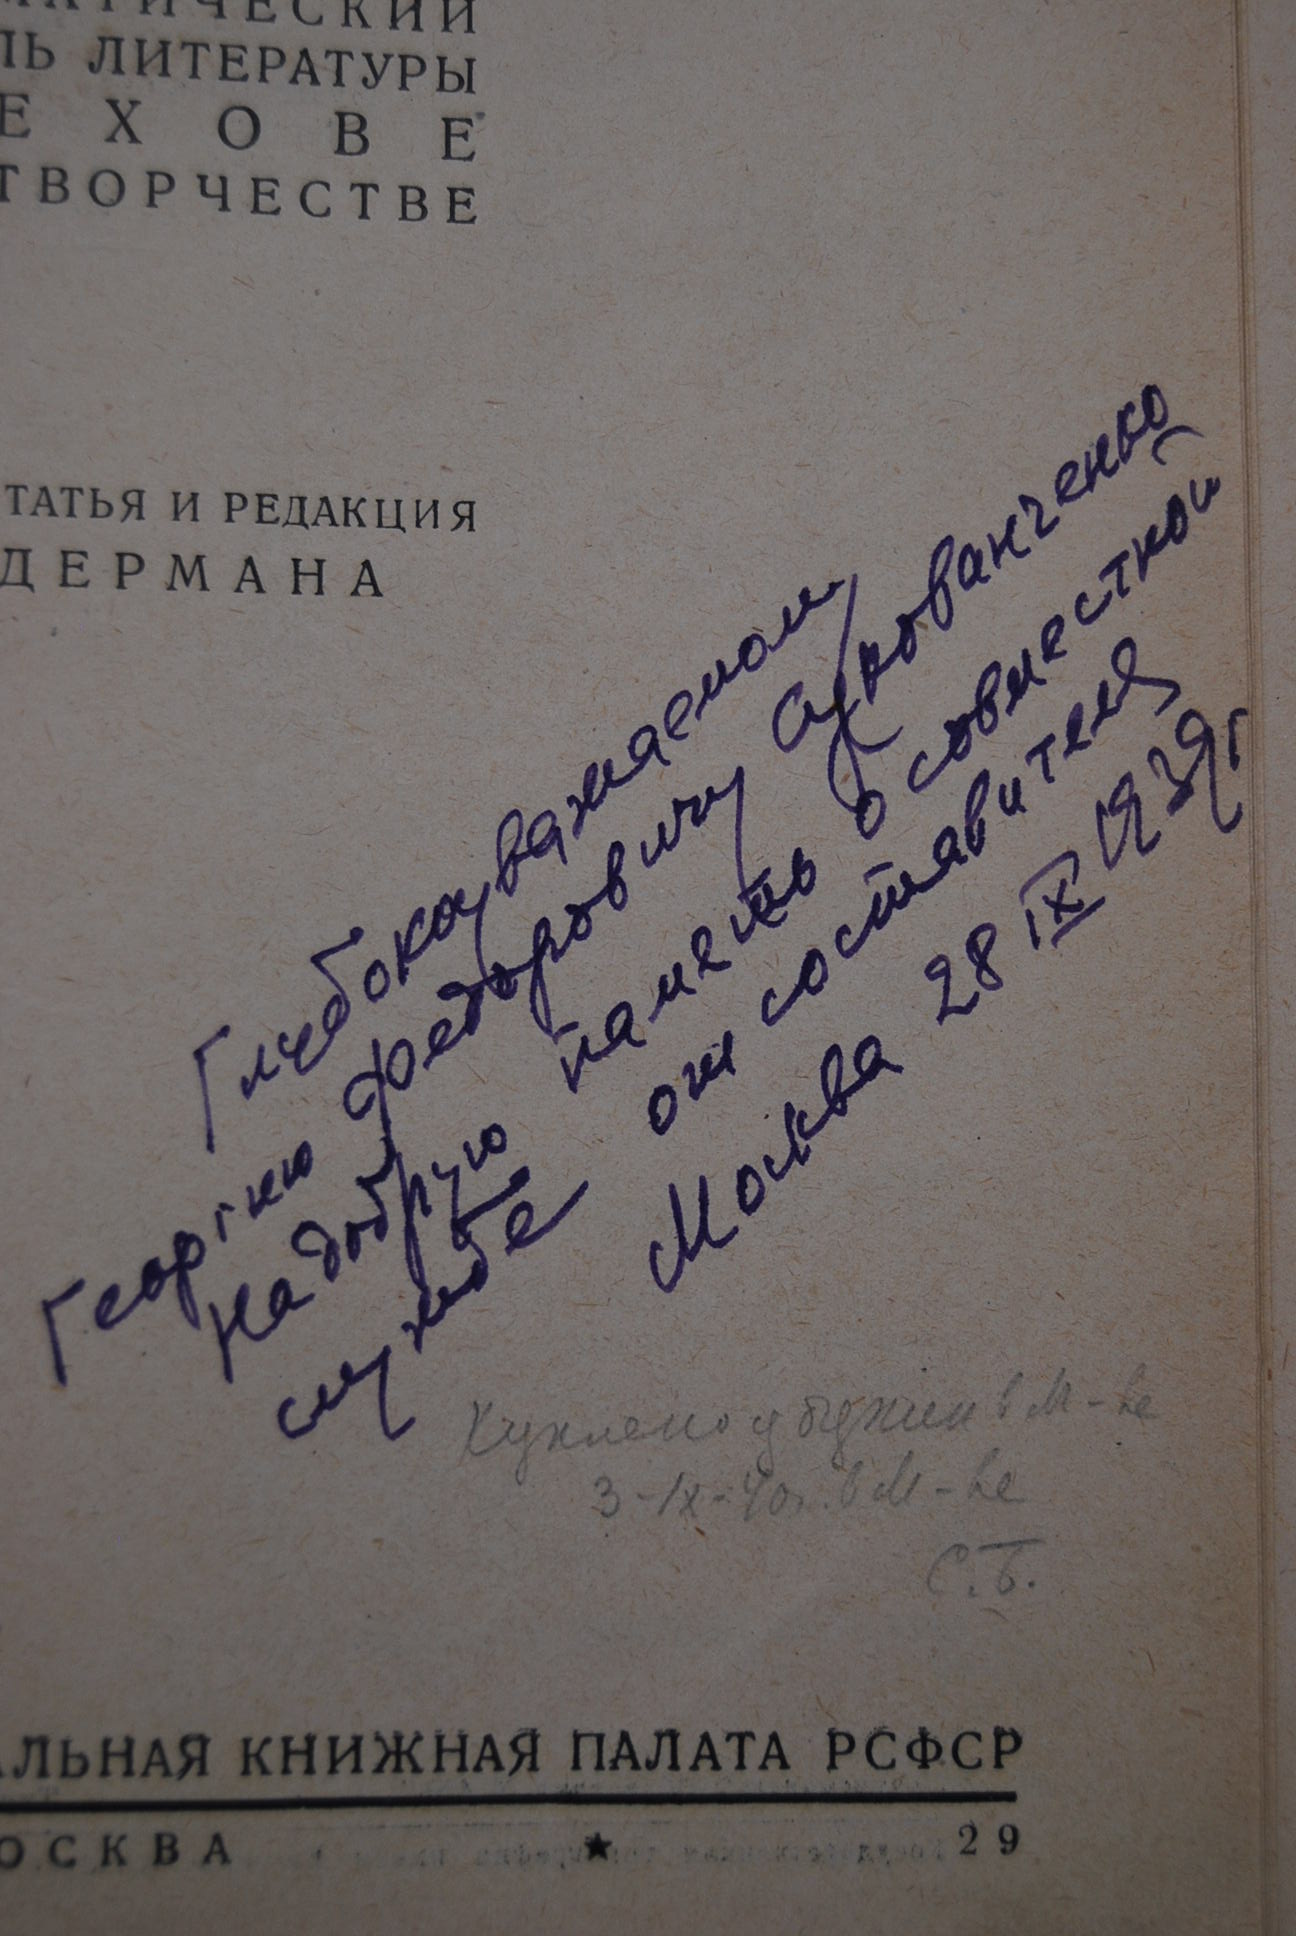 МАТИЧЕСКИЙ
ЛЬ ЛИТЕРАТУРЫ
ЕХОВЕ
ТВОРЧЕСТВЕ
ТАТЬЯ И РЕДАКЦИЯ
ДЕРМАНА
Глубокоуважаемому
Георгию Федоровичу Сукованченко
На добрую память о совместной
службе от составителя
Москва 28 IX 1939г
у в М-ве
3-IX-40г. в М-ве
С.Б.
АЛЬНАЯ КНИЖНАЯ ПАЛАТА РСФСР
ОСКВА ★ 29